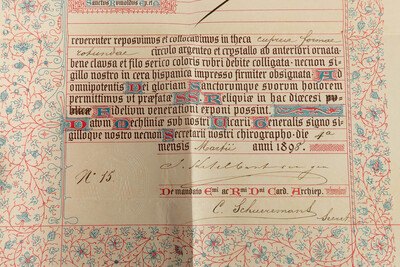 Sanctus Romualdus
reverenter reposuimus et collocavimus in theca cuprea formae
rotundae circulo argenteo et crystallo ab anteriori ornata
bene clausa et filo serico coloris rubri debite colligata, necnon si-
gillo nostro in cera hispanica impresso firmiter obsignata Ad
omnipotentis Dei gloriam Sanctorumque suorum honorem
permittimus ut præfatæ SS. Reliquiæ in hac diœcesi pu-
blicæ Fidelium venerationi exponi possint.
Datum Mechliniæ sub nostri Vicarii Generalis signo si-
gilloque nostro necnon Secretarii nostri chirographo die 4a
mensis Martii anni 1898.
N. 15
De mandato Emi ac Rmi Dni Card. Archiep.
C. Schueremans
Secret